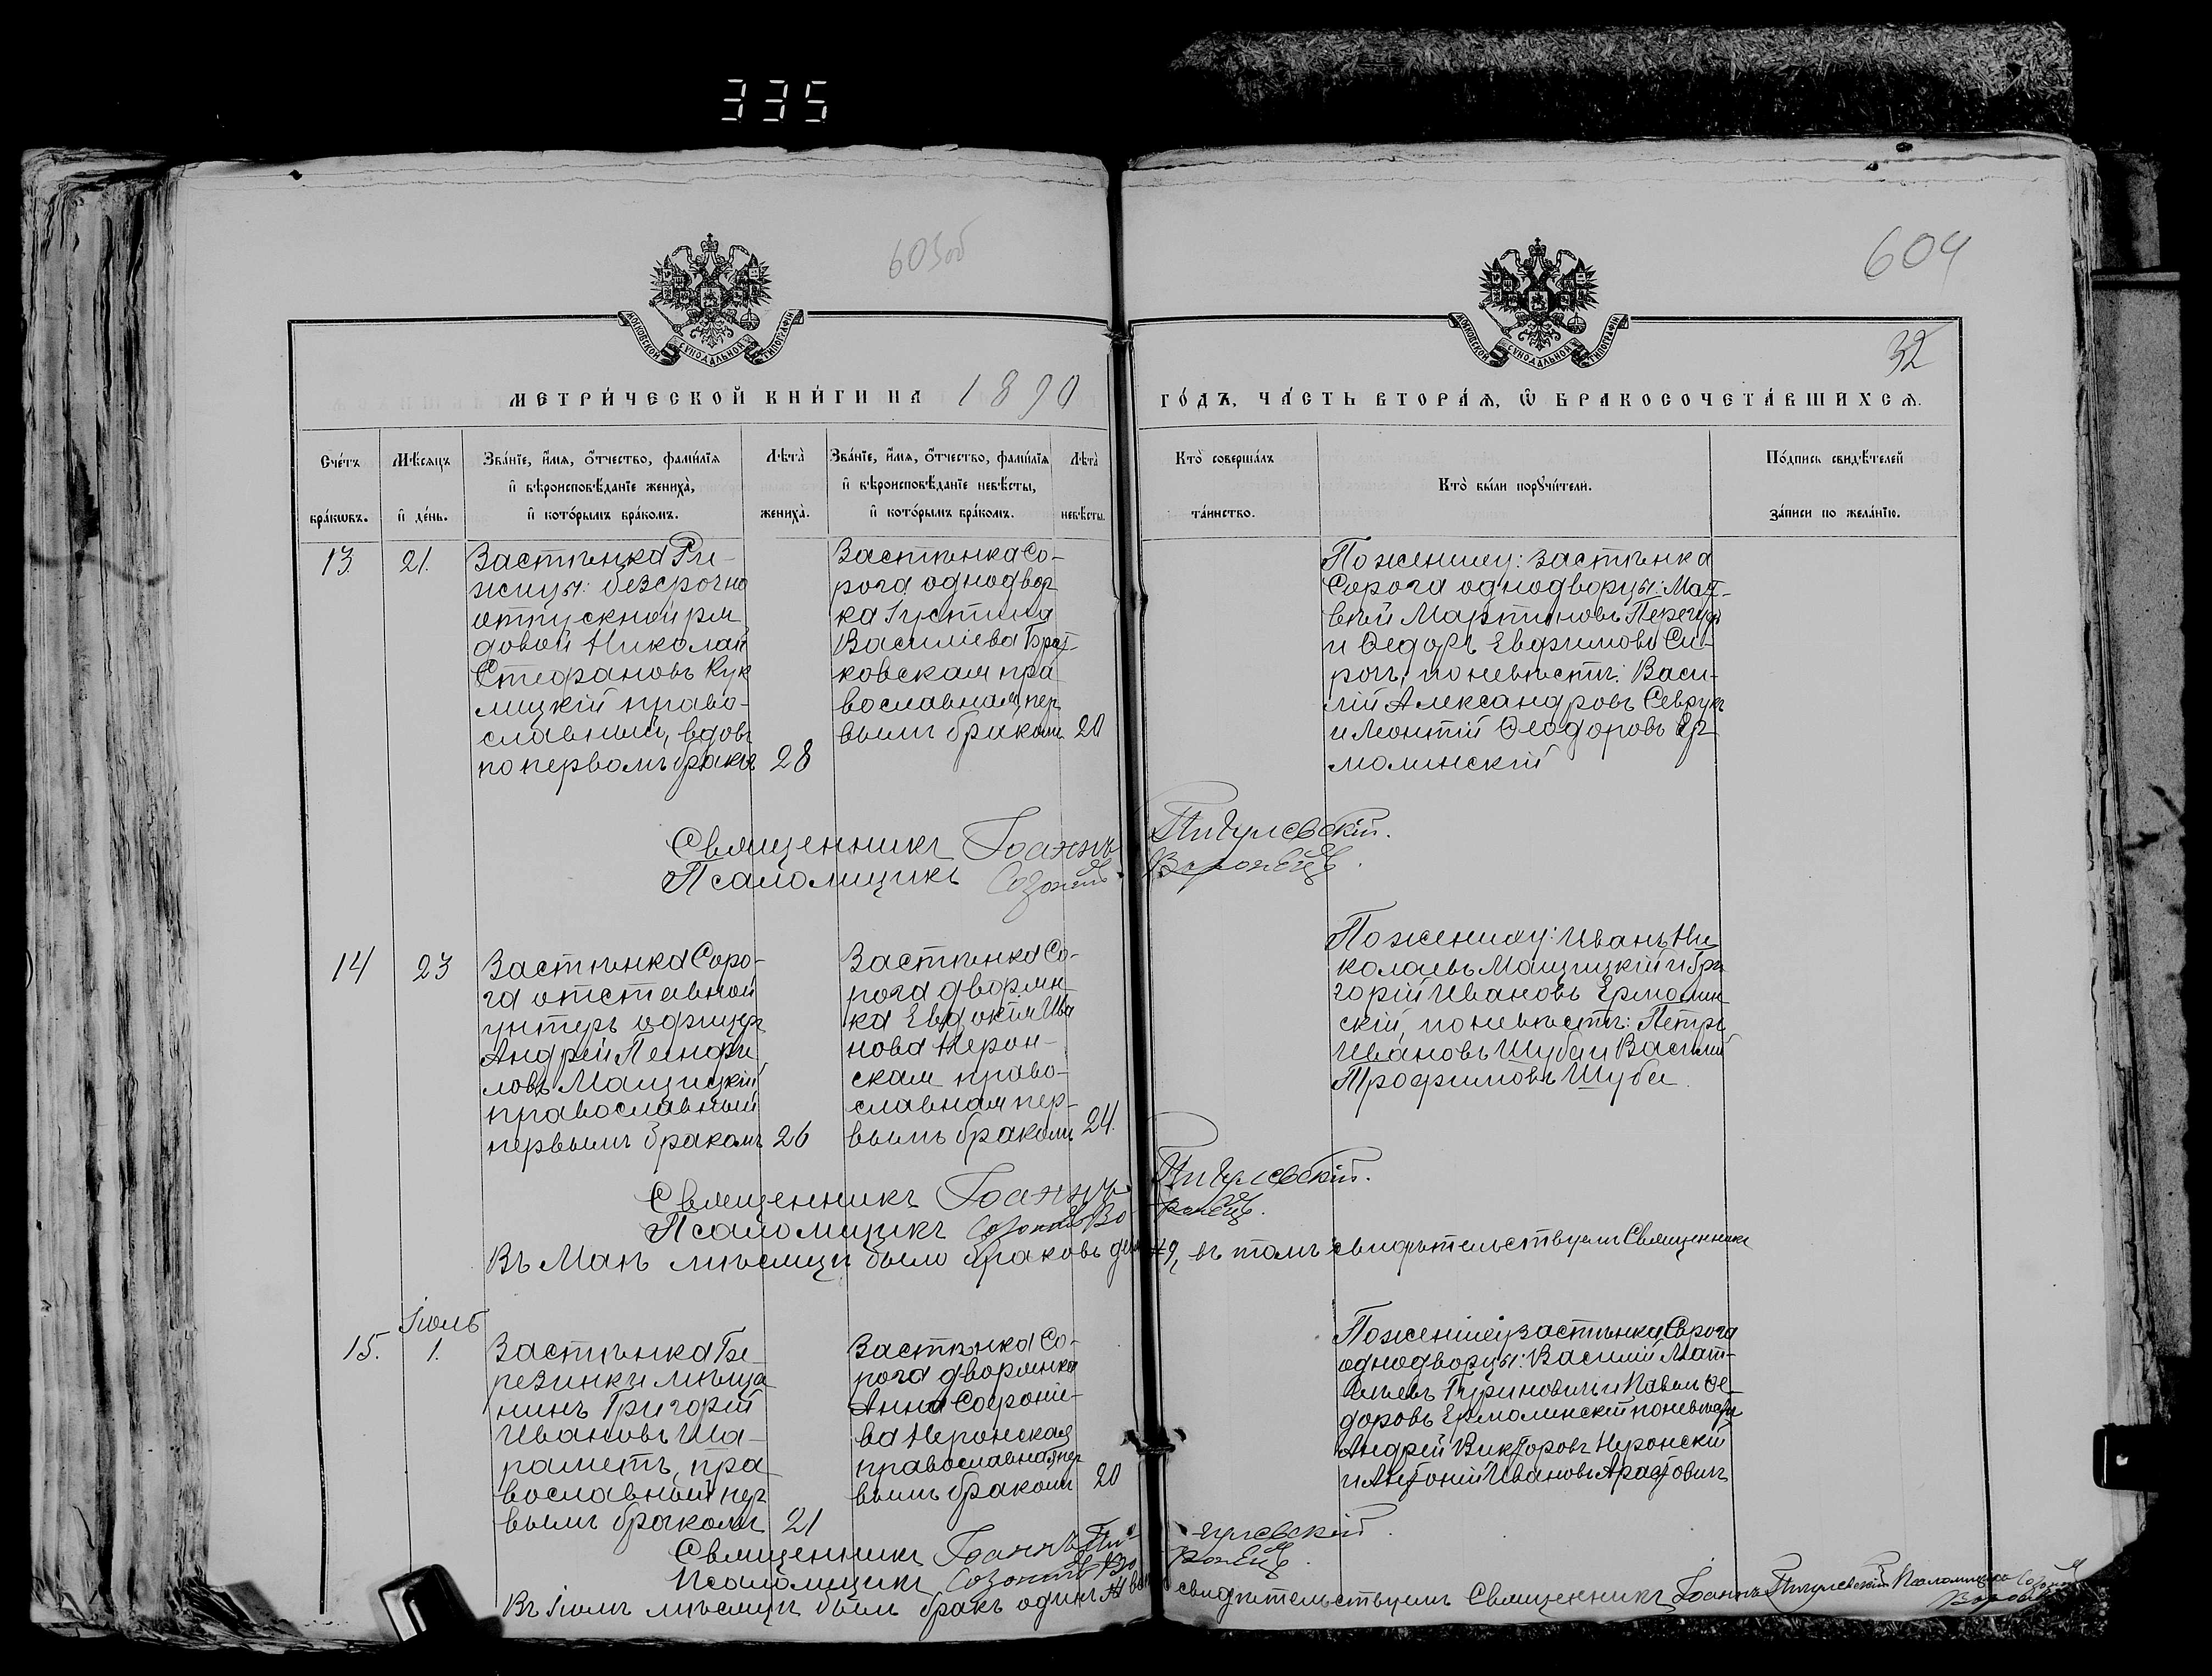 335
603об
604
32
МОСКОВСКОЙ СѴНОДАЛЬНОЙ ТИПОГРАФІИ
МОСКОВСКОЙ СѴНОДАЛЬНОЙ ТИПОГРАФІИ
МЕТРИ́ЧЕСКОЙ КНИ́ГИ НА 1890
ГО́ДЪ, ЧА́СТЬ ВТОРА́Ѧ, Ѽ БРАКОСОЧЕТА́ВШИХСѦ.
Счéтъ бра́кωвъ.
Мѣ́сяцъ и҆ де́нь.
Зва́нїе, и҆́мя, ѻ҆́тчество, фами́лїя
и҆ вѣроисповѣ́данїе жениха̀,
и҆ кото́рымъ бра́комъ.
Лѣта̀ жениха̀.
Зва́нїе, и҆́мя, ѻ҆́тчество, фами́лїя
и҆ вѣроисповѣ́данїе невѣ́сты,
и҆ кото́рымъ бра́комъ.
Лѣта̀ невѣ́сты.
Кто̀ соверша́лъ та́инство.
Кто̀ бы́ли порꙋчи́тели.
По́дпись свидѣ́телей за́писи по жела́нїю.
13.
21.
Застѣнка Ри-
жицы: безсрочно
отпускной ря
довой Николай
Стефановъ Кук
лицкій право-
славный, вдовъ
по первомъ бракѣ
28
Застѣнка Со-
рога однодвор
ка Іустина
Василіева
ковская пра
вославная, пер
вымъ бракомъ
20
По жениху: застѣнка
Сорога однодворцы: Мат-
вѣй Мартиновъ
и Ѳедоръ Евфимовъ Си-
рочъ, по невѣстѣ: Васи-
лій Александровъ Севрукъ
и Леонтій Ѳеодоровъ Ер-
молинскій
Священникъ Іоаннъ Пигулевскій.
Псаломщикъ Созонтъ Воронецъ.
14
23
Застѣнка Соро-
га отставной
унтеръ офицеръ
Андрей
ловъ Мащицкій
православный
первымъ бракомъ
26
Застѣнка Со-
рога дворян-
ка Евдокія Ива
нова Нерон-
ская право-
славная пер-
вымъ бракомъ
24.
По жениху: Иванъ Ни
колаевъ Мащицкій и Гри
горій Ивановъ Ермолин-
скій, по невѣстѣ: Петръ
Ивановъ Шуба и Василій
Трофимовъ Шуба.
Священникъ Іоаннъ Пигулевскій.
Псаломщикъ Созонтъ Воронецъ.
Въ Маѣ мѣсяцѣ было браковъ въ томъ свидѣтельствуемъ Священникъ
15.
Іюль
1.
Застѣнка Бе-
резинки мѣща
нинъ Григорій
Ивановъ Ша-
раметъ, пра
вославный пер
вымъ бракомъ
21
Застѣнка Со-
рога дворянка
Анна Софроні-
ва Неронская
православная пер
вымъ бракомъ
20
По жениху застѣнка Сорога
однодворцы: Василій Мат-
вѣевъ Гуриновичъ и Павелъ Ѳе-
доровъ Ермолинскій по невѣстѣ
Андрей Викторовъ Неронскій
и Антоній Ивановъ Арастовичъ
Священникъ Іоаннъ Пигулевскій.
Псаломщикъ Созонтъ Воронецъ.
Въ Іюлѣ мѣсяцѣ былъ бракъ одинъ свидѣтельствуемъ Священникъ Іоаннъ Пигулевскій Псаломщикъ Созонтъ
Воронецъ